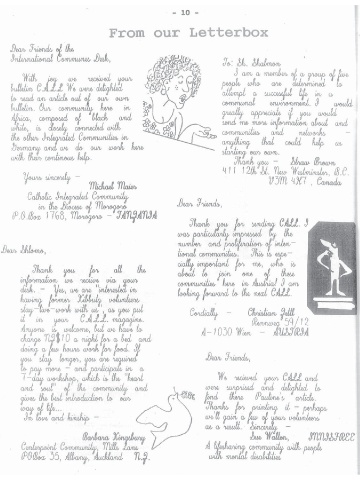 - 10 -
From our Letterbox
Dear Friends of the
International Communes Desk,
With joy we received your
bulletin C.A.L.L. We were delighted
to read an article out of our own
bulletin. Our community here in
Africa, composed of black and
white, is closely connected with
the other Integrated Communities in
Germany and we do our work here
with their continous help.
Yours sincerely -
Michael Maier
Catholic Integrated Community
in the Diocese of Morogoro
P.O.Box 1768, Morogoro - TANZANIA
Dear Shlomo,
Thank you for all the
information we receive via your
desk. - Yes, we are interested in
having former Kibbutz volunteers
stay + work with us, as you put
it in your C.A.L.L. magazine.
Anyone is welcome, but we have to
charge NZ$10 a night for a bed and
doing a few hours work for food. If
you stay longer, you are required
to pay more - and participate in a
7-day workshop, which is the 'heart
and soul' of the community and
gives the best introduction to our
way of life...
In love and kinship -
Barbara Kingsbury
Centerpoint Community, Mills Lane
P.O.Box 35, Albany, Auckland N.Z.
To: Sh. Shalmon
I am a member of a group of five
people who are determined to
attempt a successful life in a
communal environment. I would
greatly appreciate if you would
send me more information about and
communities and networks -
anything that could help us
starting our own.
Thank you - Shawn Brown
411 12th St. New Westminster, B.C.
V3M 4X7, Canada
Dear Friends,
Thank you for sending CALL. I
was particularly impressed by the
number and proliferation of inten-
tional communities. This is espe-
cially important for me, who is
about to join one of these
communities here in Austria! I am
looking forward to the next CALL
Cordially - Christian
Rennweg 59/12
A-1030 Wien - AUSTRIA
Dear Friends,
We received your CALL and
were surprised and delighted to
find there Pauline's article.
Thanks for printing it - perhaps
will gain a few of your volunteers
as a result. Sincerely -
Sue Wilton, INNISFREE
A lifesharing community with people
with mental disabilities